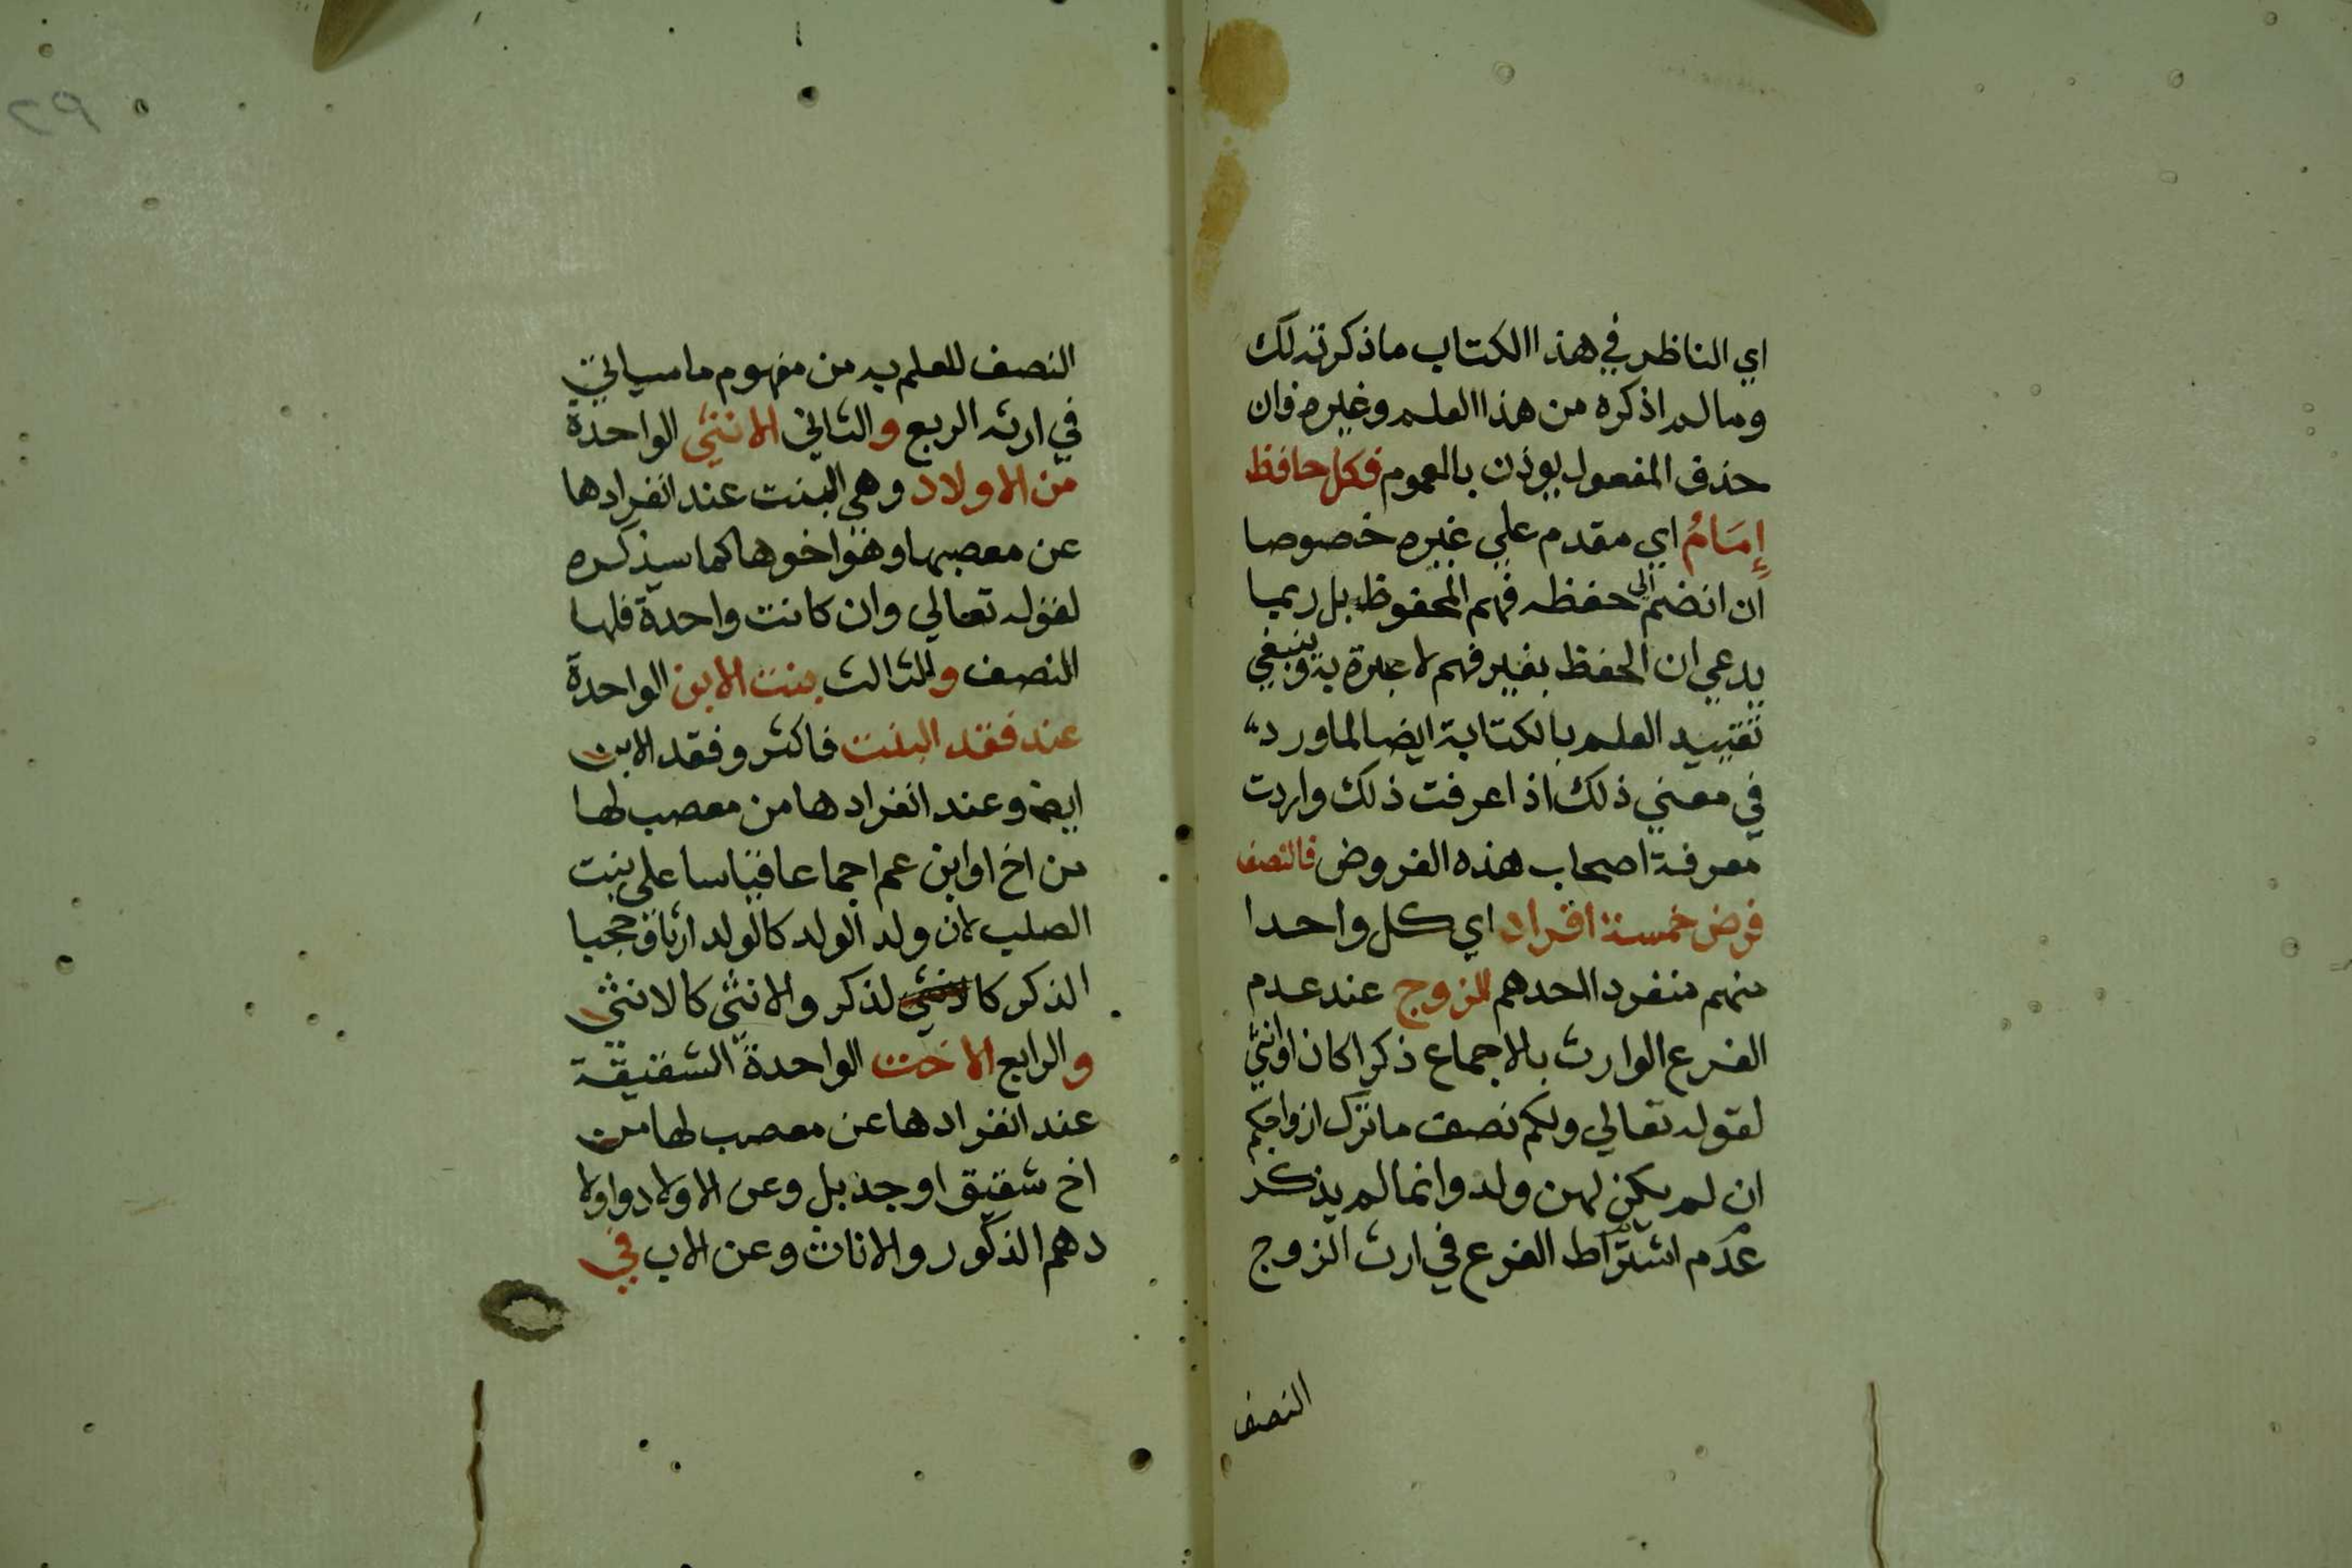 اي الناظر في هذا الكتاب ما ذكرته لك
وما لم اذكره من هذا العلم وغيره فان
حذف المفعول يوذن بالعموم فكل حافظ
إِمَامُ اي مقدم علي غيره خصوصا
ان انضم الى حفظه فهم المحفوظ بل ربما
يدعي ان الحفظ بغير فهم لا عبرة به وينبغي
تقييد العلم بالكتابة ايضا لما ورد
في معني ذلك اذا عرفت ذلك واردت
معرفة اصحاب هذه الفروض فالنصف
فرض خمسة افراد اي كل واحدا
منهم منفرد احدهم للزوج عند عدم
الفرع الوارث بالاجماع ذكرا كان او انثي
لقوله تعالي ولكم نصف ما ترك ازواجكم
ان لم يكن لهن ولد وانما لم يذكر
عدم اشتراط الفرع في ارث الزوج
النصف
٢٩
النصف للعلم به من مفهوم ما سياتي
في ارثه الربع والثاني الانثي الواحدة
من الاولاد وهي البنت عند انفرادها
عن معصبها وهو اخوها كما سيذكره
لقوله تعالي وان كانت واحدة فلها
النصف والثالث بنت الابن الواحدة
عند فقد البنت فاكثر وفقد الابن
ايضا وعند انفرادها من معصب لها
من اخ او ابن عم اجماعا قياسا على بنت
الصلب لان ولد الولد كالولد ارثا وحجبا
الذكر كا لذكر والانثي كالانثي
والرابع الاخت الواحدة الشقيقة
عند انفرادها عن معصب لها من
اخ شقيق او جد بل وعن الاولاد واولا
دهم الذكور والاناث وعن الاب في